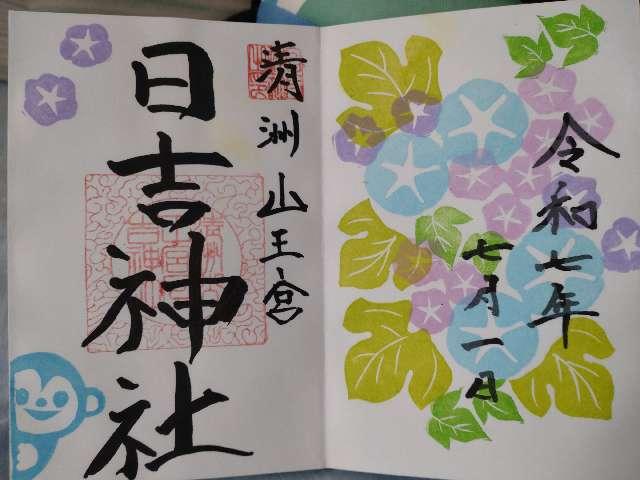 令和七年
七月一日
清洲山王宮
日吉神社